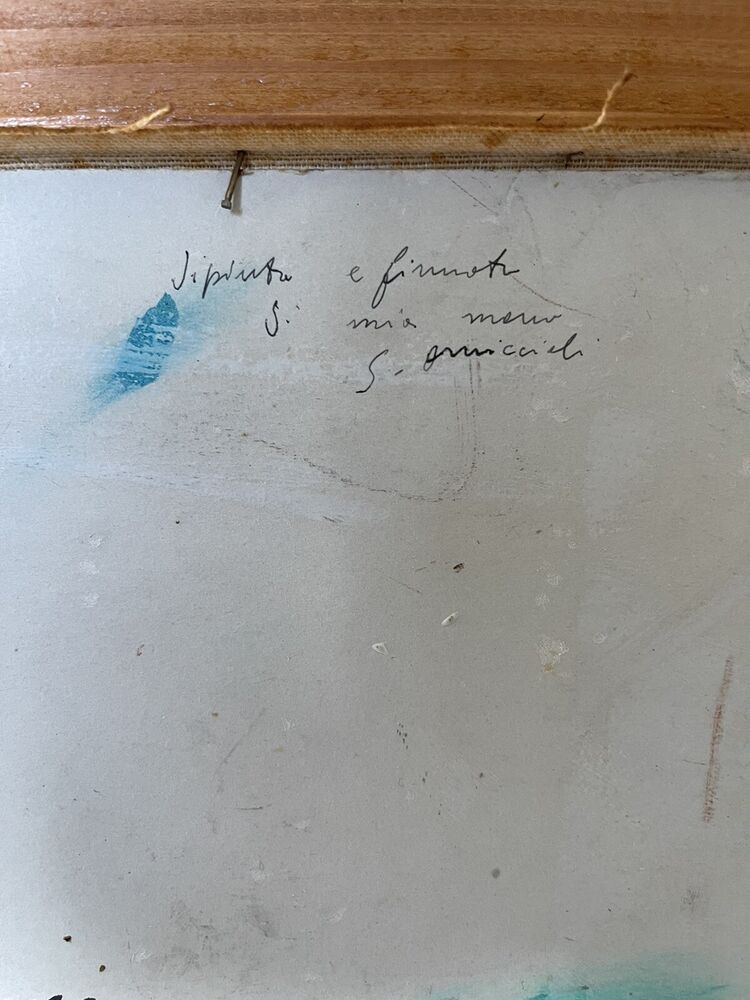 dipinta e firmata
di mia mano
S. Omiccioli